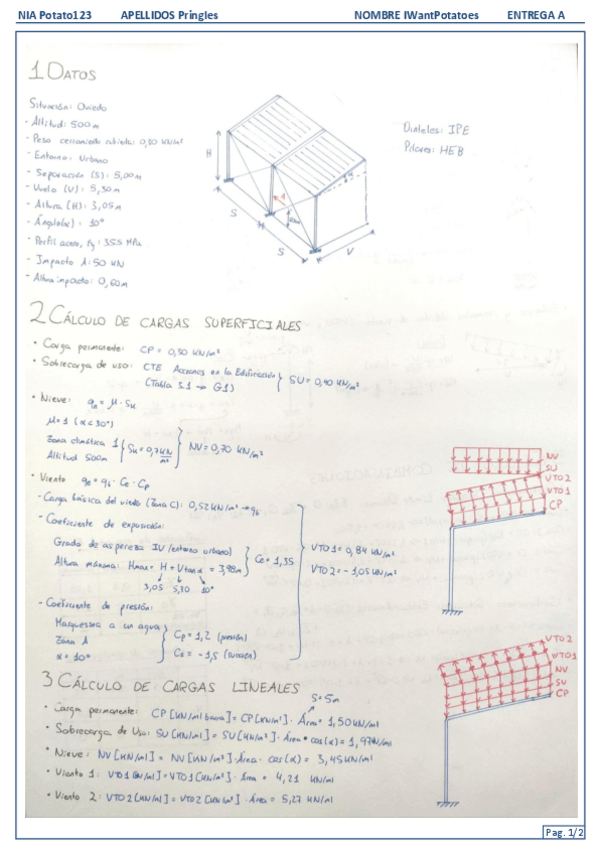 NIA Potato123 APELLIDOS Pringles NOMBRE IWantPotatoes ENTREGA A
1 DATOS
Situación: Oviedo
- Altitud: 500 m
- Peso cerramiento cubierta: 0,30 KN/m²
- Entorno: Urbano
- Separación (S): 5,00 m
- Vuelo (V): 5,30 m
- Altura (H): 3,05 m
- Ángulo(α): 10°
- Perfil acero, fy: 355 MPa
- Impacto A: 50 KN
- Altura impacto: 0,60 m
H
S
S
V
A
Dinteles: IPE
Pilares: HEB
2 CÁLCULO DE CARGAS SUPERFICIALES
• Carga permanente: CP = 0,30 KN/m²
• Sobrecarga de uso: CTE Acciones en la Edificación
(Tabla 3.1 → G1)
SU = 0,40 KN/m²
• Nieve: qn = μ · Sk
μ = 1 (α < 30°)
Zona climática 1
Altitud 500m
Sk = 0,7 KN/m²
NV = 0,70 KN/m²
• Viento qe = qb · Ce · Cp
- Carga básica del viento (Zona C): 0,52 KN/m² → qb
- Coeficiente de exposición:
Grado de aspereza IV (entorno urbano)
Altura máxima: Hmax = H + V tan α = 3,98m
3,05 5,30 10°
Ce = 1,35
VTO 1 = 0,84 KN/m²
VTO 2 = - 1,05 KN/m²
- Coeficiente de presión:
Marquesina a un agua
Zona A
α = 10°
Cp = 1,2 (presión)
Cs = - 1,5 (succión)
NV
SU
VTO 2
VTO 1
CP
3 CÁLCULO DE CARGAS LINEALES
S = 5m
• Carga permanente: CP [KN/ml barra] = CP [KN/m²] · Área = 1,50 KN/ml
• Sobrecarga de Uso: SU [KN/ml] = SU [KN/m²] · Área · cos(α) = 1,97 KN/ml
• Nieve: NV [KN/ml] = NV [KN/m²] · Área · cos(α) = 3,45 KN/ml
• Viento 1: VTO1 [KN/ml] = VTO1 [KN/m²] · Área = 4,21 KN/ml
• Viento 2: VTO2 [KN/ml] = VTO2 [KN/m²] · Área = 5,27 KN/ml
VTO 2
VTO 1
NV
SU
CP
Pag. 1/2